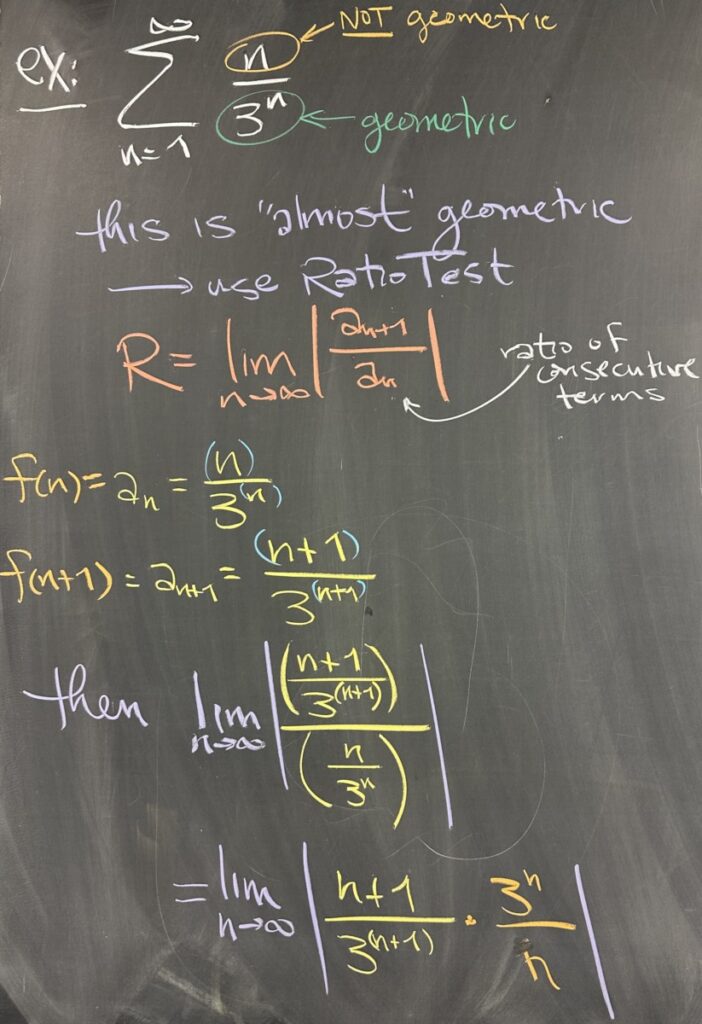 ex: ∑_{n=1}^{∞} n/3^n ← NOT geometric
← geometric
this is "almost" geometric
→ use Ratio Test
R = lim_{n→∞} |a_{n+1}/a_n|
ratio of
consecutive
terms
f(n) = a_n = (n)/3^(n)
f(n+1) = a_{n+1} = (n+1)/3^(n+1)
then lim_{n→∞} |((n+1)/3^(n+1))/(n/3^n)|
= lim_{n→∞} |(n+1)/3^(n+1) · 3^n/n|